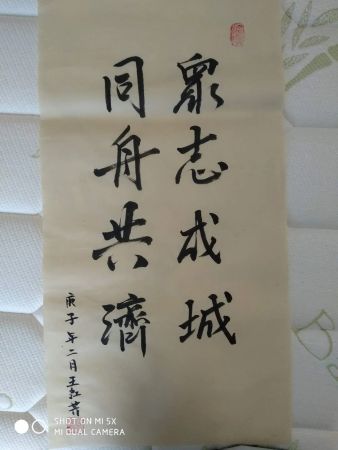 眾志成城
同舟共濟
庚子年二月王红芳
SHOT ON MI 5X
MI DUAL CAMERA